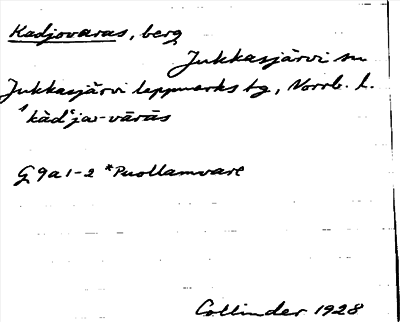 Kadjovaras, berg
Jukkasjärvi sn
Jukkasjärvi lappmarks tg, Norrb. l.
‛kàd‛ja-vāràs
G 9a 1-2 *Puollamvare
Collinder 1928